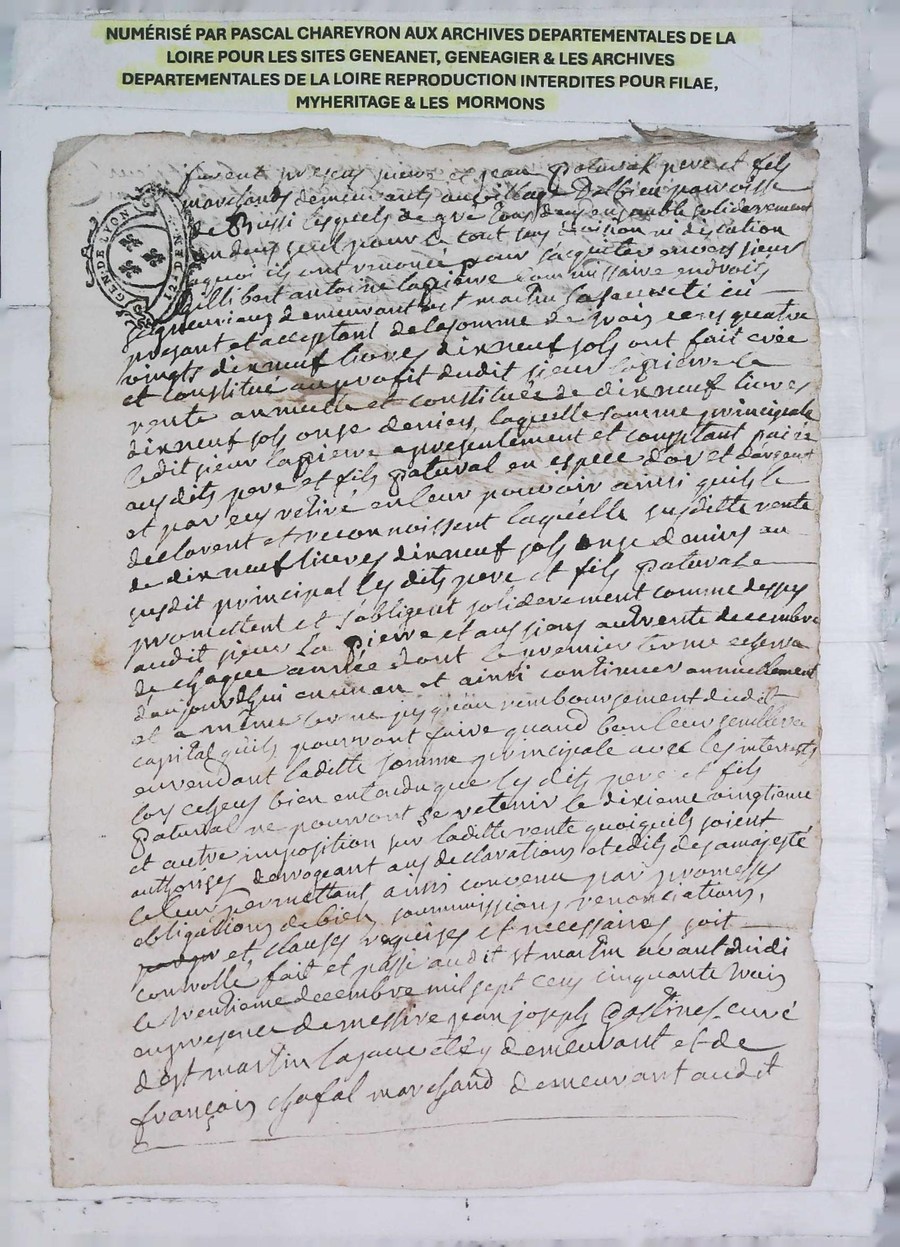 NUMÉRISÉ PAR PASCAL CHAREYRON AUX ARCHIVES DEPARTEMENTALES DE LA
LOIRE POUR LES SITES GENEANET, GENEAGIER & LES ARCHIVES
DEPARTEMENTALES DE LA LOIRE REPRODUCTION INTERDITES POUR FILAE,
MYHERITAGE & LES MORMONS
GEN DE LYON
furent presens pierre et jean patural pere et fils
marchands demeurants au village paroisse
de Bussi lesquels de gre tous deux ensemble soliderement
un deux seul pour le tout sans division ni discution
a quoi ils ont renoncé pour s'aquiter envers sieur
antoine lapierre commissaire en droits
seigneuriaux demeurant a st martin la sauveté ici
présant et acceptant de la somme de trois cens quatre
vingts dixneuf livres dixneuf sols ont fait crée
et constitué au profit dudit sieur lapierre la
rente annuelle et constituée de dixneuf livres
dixneuf sols onze deniers, laquelle somme principale
ledit sieur lapierre a présentement et comptant paiée
aus dits pere et fils patural en espece d'or et d'argent
et par eus retiré en leur pouvoir ainsi quils le
déclarent et reconnoissent laquelle susditte rente
de dixneuf livres dixneuf sols onze deniers au
susdit principal les dits pere et fils patural
promettent et s'obligent soliderement comme dessus
audit sieur La Pierre et aus siens au trente decembre
de chaque année dont le premier terme echerra
d'aujourdhui en un an et ainsi continuer annuellement
et a même terme jusqu'au remboursement dudit
capital qu'ils pourront faire quand bon leur semblera
en rendant laditte somme principale avec les interrets
lors echeus bien entendu que les dits pere et fils
patural ne pourront se retenir le dixieme vingtieme
et autre imposition sur laditte rente quoiquils soient
authorisés derrogeant aus declarations et edits de sa majesté
ce leur permettant ainsi convenu par promesses
obligations de biens soummissions renonciations,
et clauses requises et necessaires soit
controllé fait et passé audit st martin avant midi
le trentieme decembre mil sept cens cinquante trois
en presence de messire jean joseph curé
de st martin la sauveté y demeurant et de
françois chafal marchand demeurant audit